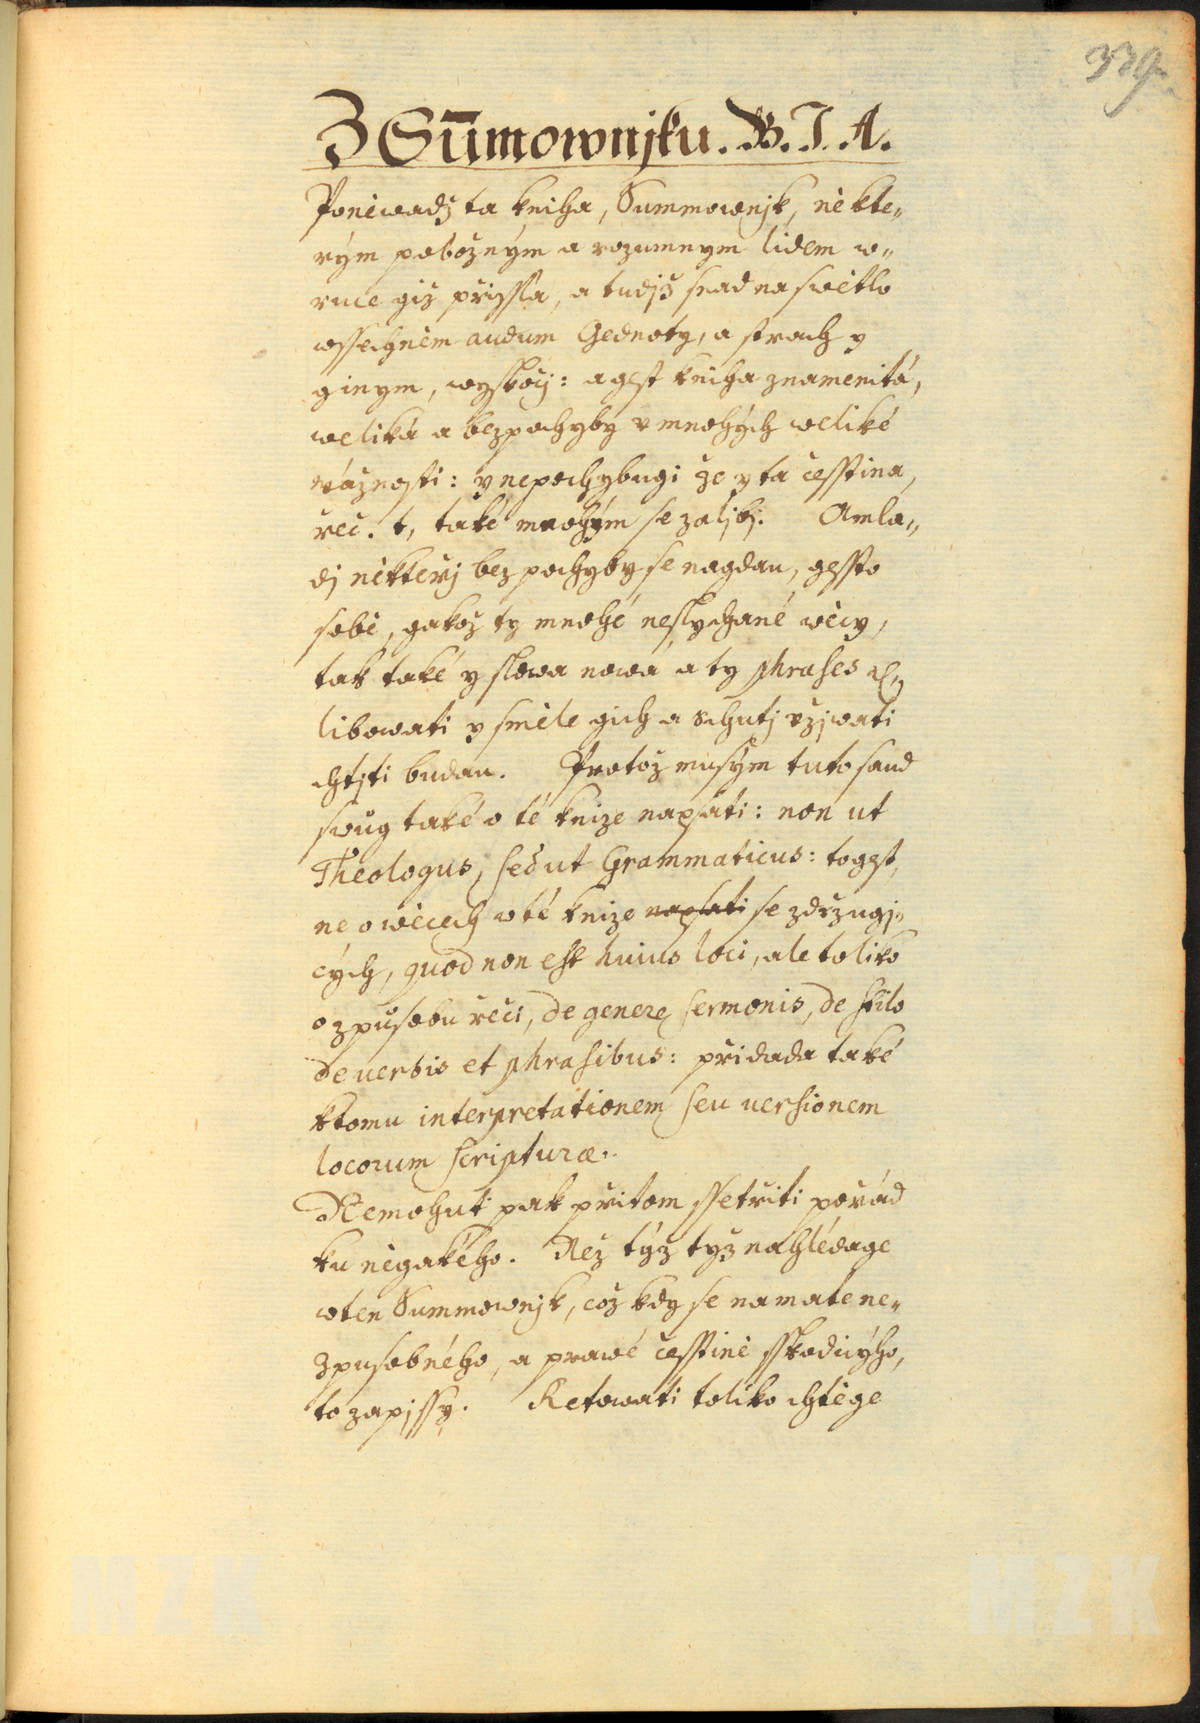 339.
Z Sum̄ownjku. B. J. A.
Poněwadž ta kniha, Summownjk, někte„
rým pobožným a rozumnym lidem w„
ruce giž přissla, a tudjž snad na swětlo
wssechněm audum Gednoty, a strach y
ginym, wyskočj: a gest kniha znamenitá,
weliká a bezpochyby v mnohých weliké
wážnosti: y nepochybugi že y ta česstina,
řeč. t, také mnohým se zaljbj. A mla„
dj někteřj bez pochyby se nagdau, gessto
sobě, gakož ty mnohé neslychané wěcy,
tak také y slowa nowá a ty phrases etc.
libowati y směle gich a schutj vžjwati
chtjti budau. Protož musým tuto saud
swůg také o té knize napsati: non ut
Theologus, sed ut Grammaticus: togest,
ne o wěcech wté knize napsati se zdržugj„
cých, quod non est huius loci, ale toliko
o způsobu řeči, de genere sermonis, de stilo
de uerbis et phrasibus: přidada také
ktomu interpretationem seu uersionem
locorum scripturæ.
Nemohuti pak přitom ssetřiti pořád
ku něgakého. Než týž tyž nahlédage
wten Summownjk, což kdy se namate ne„
zpusobného, a prawé česstině sskodicýho,
to zapjssy. Retowati toliko chtěge
MZK
MZK